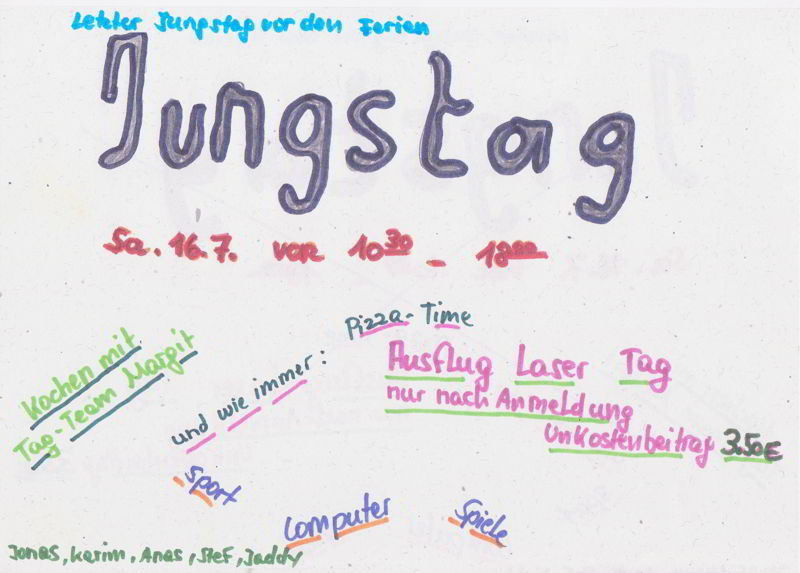 Letzter Jungstag vor den Ferien
Jungstag
Sa. 16.7. von 10³⁰ - 18⁰⁰
Pizza-Time
Kochen mit
Tag-Team Margit
und wie immer:
Ausflug Laser Tag
nur nach Anmeldung
Unkostenbeitrag 3.50€
Sport
Computer
Spiele
Jonas, Karim, Anas, Stef, Jaddy